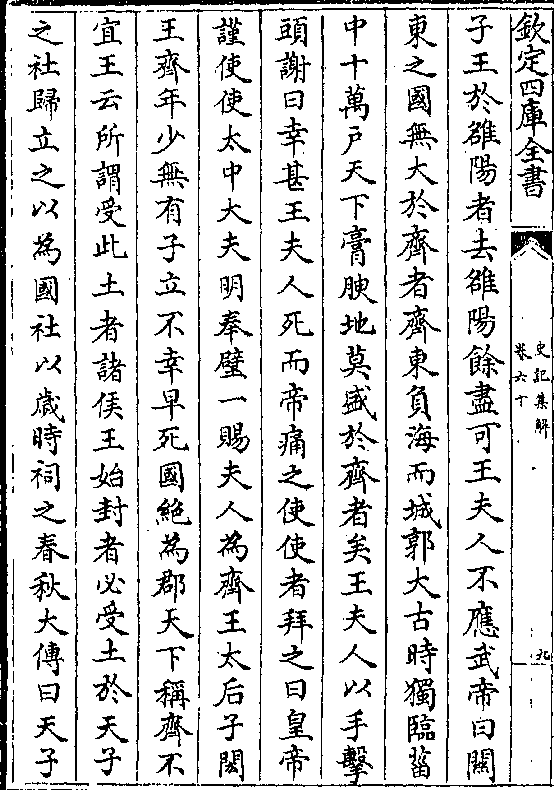 欽定四庫全書
史記集解
卷六十
九
子王於雒陽者去雒陽餘盡可王夫人不應武帝曰關
東之國無大於齊者齊東負海而城郭大古時獨臨菑
中十萬戶天下膏腴地莫盛於齊者矣王夫人以手擊
頭謝曰幸甚王夫人死而帝痛之使使者拜之曰皇帝
謹使使太中大夫明奉璧一賜夫人為齊王太后子閎
王齊年少無有子立不幸早死國絶為郡天下稱齊不
宜王云所謂受此土者諸侯王始封者必受土於天子
之社歸立之以為國社以歲時祠之春秋大傳曰天子